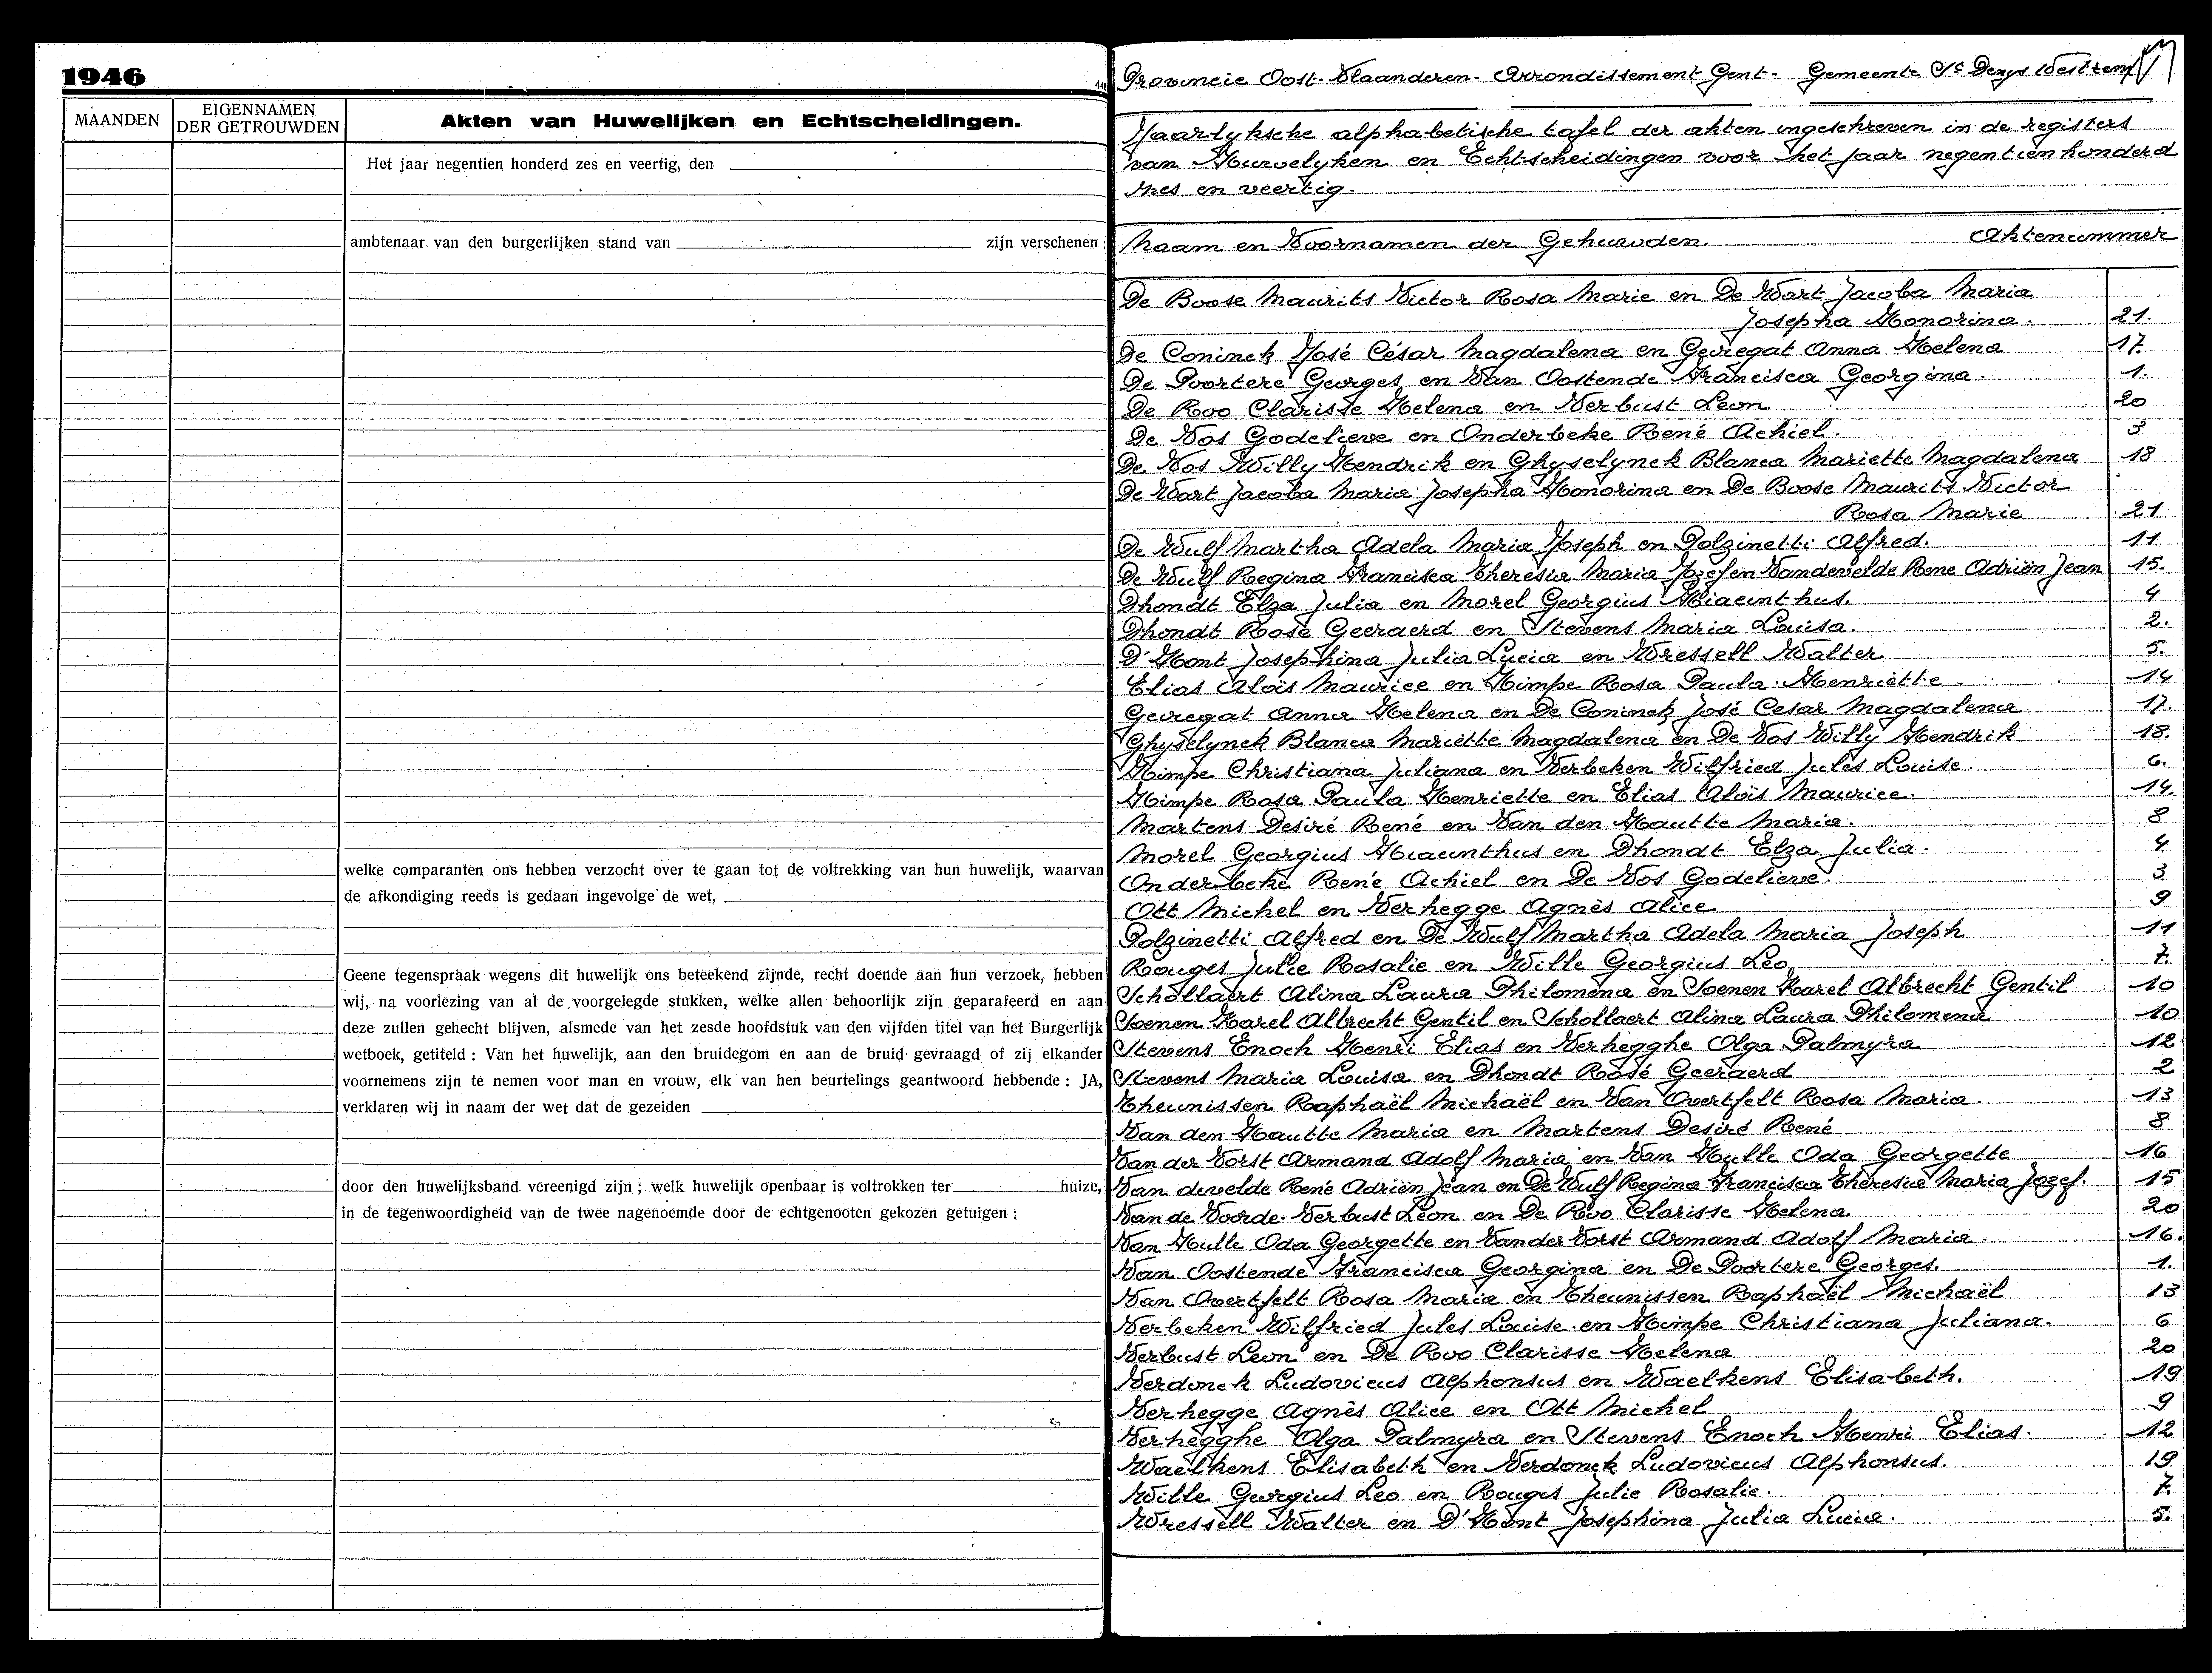 1946
MAANDEN
EIGENNAMEN
DER GETROUWDEN
Akten van Huwelijken en Echtscheidingen.
Het jaar negentien honderd zes en veertig, den
ambtenaar van den burgerlijken stand van zijn verschenen :
welke comparanten ons hebben verzocht over te gaan tot de voltrekking van hun huwelijk, waarvan
de afkondiging reeds is gedaan ingevolge de wet,
Geene tegenspraak wegens dit huwelijk ons beteekend zijnde, recht doende aan hun verzoek, hebben
wij, na voorlezing van al de voorgelegde stukken, welke allen behoorlijk zijn geparafeerd en aan
deze zullen gehecht blijven, alsmede van het zesde hoofdstuk van den vijfden titel van het Burgerlijk
wetboek, getiteld : Van het huwelijk, aan den bruidegom en aan de bruid gevraagd of zij elkander
voornemens zijn te nemen voor man en vrouw, elk van hen beurtelings geantwoord hebbende : JA,
verklaren wij in naam der wet dat de gezeiden
door den huwelijksband vereenigd zijn ; welk huwelijk openbaar is voltrokken ter huize,
in de tegenwoordigheid van de twee nagenoemde door de echtgenooten gekozen getuigen :
Provincie Oost-Vlaanderen - Arrondissement Gent - Gemeente St Denys Westrem
Jaarlyksche alphabetische tafel der akten ingeschreven in de registers
van Huwelyken en Echtscheidingen voor het jaar negentien honderd
zes en veertig.
Naam en Voornamen der Gehuwden. Aktenummer
De Boose Maurits Victor Rosa Marie en De Wart Jacoba Maria
Josepha Honorina. 21.
De Coninck José César Magdalena en Gevregat Anna Helena 17.
De Poortere Georges en Van Oostende Francisca Georgina. 1.
De Roo Clarisse Helena en Verbust Leon. 20
De Vos Godelieve en Onderbeke René Achiel. 3
De Vos Willy Hendrik en Ghyselynck Blanca Mariette Magdalena 18
De Wart Jacoba Maria Josepha Honorina en De Boose Maurits Victor
Rosa Marie 21
De Wulf Martha Adela Maria Joseph en Polzinetti Alfred. 11
De Wulf Regina Francisca Theresia Maria Jozef en Vandevelde Rene Adrien Jean 15.
Dhondt Elza Julia en Morel Georgius Hiacinthus. 4
Dhondt Rosé Geeraerd en Stevens Maria Louisa. 2.
D'Hont Josephina Julia Lucia en Wressell Walter 5.
Elias Aloïs Maurice en Himpe Rosa Paula Henriette. 14
Gevregat Anna Helena en De Coninck José Cesar Magdalena 17.
Ghyselynck Blanca Mariette Magdalena en De Vos Willy Hendrik 18.
Himpe Christiana Juliana en Verbeken Wilfried Jules Louise. 6.
Himpe Rosa Paula Henriette en Elias Aloïs Maurice. 14.
Martens Desiré René en Van den Hautte Maria. 8
Morel Georgius Hiacinthus en Dhondt Elza Julia. 4
Onderbeke René Achiel en De Vos Godelieve. 3
Ott Michel en Verhegge Agnès Alice 9
Polzinetti Alfred en De Wulf Martha Adela Maria Joseph 11
Rouges Julie Rosalie en Wille Georgius Leo 7.
Schollaert Alina Laura Philomena en Soenen Karel Albrecht Gentil 10
Soenen Karel Albrecht Gentil en Schollaert Alina Laura Philomena 10
Stevens Enoch Henri Elias en Verhegghe Olga Palmyra 12
Stevens Maria Louisa en Dhondt Rosé Geeraerd 2
Theunissen Raphaël Michaël en Van Overtfelt Rosa Maria. 13
Van den Hautte Maria en Martens Desiré René 8
Van der Vorst Armand Adolf Maria en Van Hulle Oda Georgette 16
Van develde René Adrien Jean en De Wulf Regina Francisca Theresia Maria Jozef. 15
Van de Voorde-Verbust Leon en De Roo Clarisse Helena. 20
Van Hulle Oda Georgette en Vander Vorst Armand Adolf Maria. 16.
Van Oostende Francisca Georgina en De Poortere Georges. 1.
Van Overtfelt Rosa Maria en Theunissen Raphaël Michaël 13
Verbeken Wilfried Jules Louise en Himpe Christiana Juliana. 6
Verbust Leon en De Roo Clarisse Helena 20
Verdonck Ludovicus Alphonsus en Waelkens Elisabeth. 19
Verhegge Agnès Alice en Ott Michel 9
Verhegghe Olga Palmyra en Stevens Enoch Henri Elias. 12
Waelkens Elisabeth en Verdonck Ludovicus Alphonsus. 19
Wille Georgius Leo en Rouges Julie Rosalie. 7.
Wressell Walter en D'Hont Josephina Julia Lucia. 5.